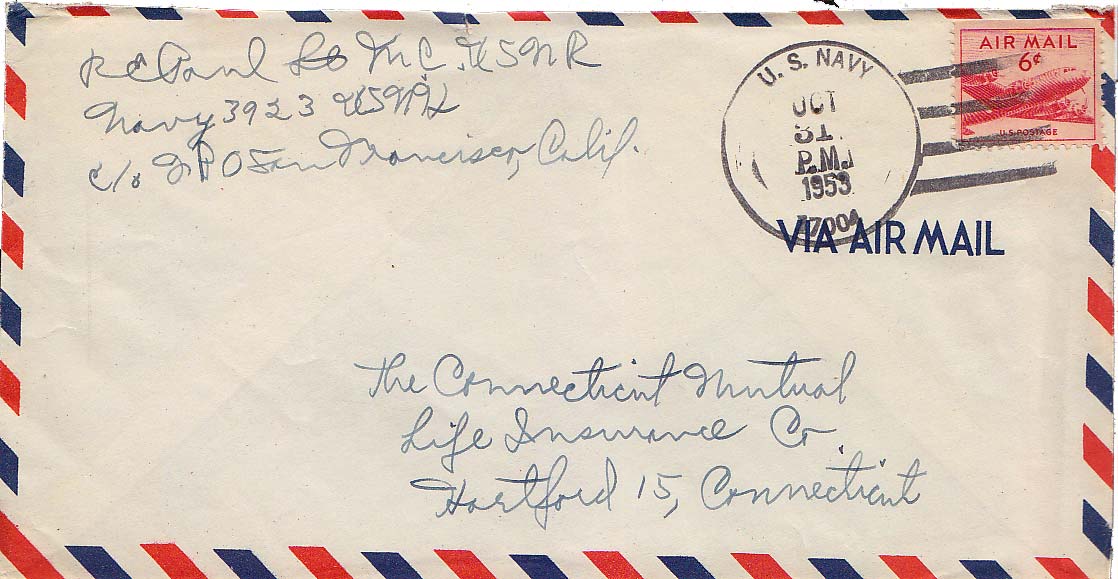 R E Paul Lt MC. USNR
Navy 3923 USNH
c/o F P O San Francisco, Calif.
U. S. NAVY
OCT
31
P.M.
1953
17004
AIR MAIL
6¢
U.S. POSTAGE
VIA AIR MAIL
The Connecticut Mutual
Life Insurance Co.
Hartford 15, Connecticut